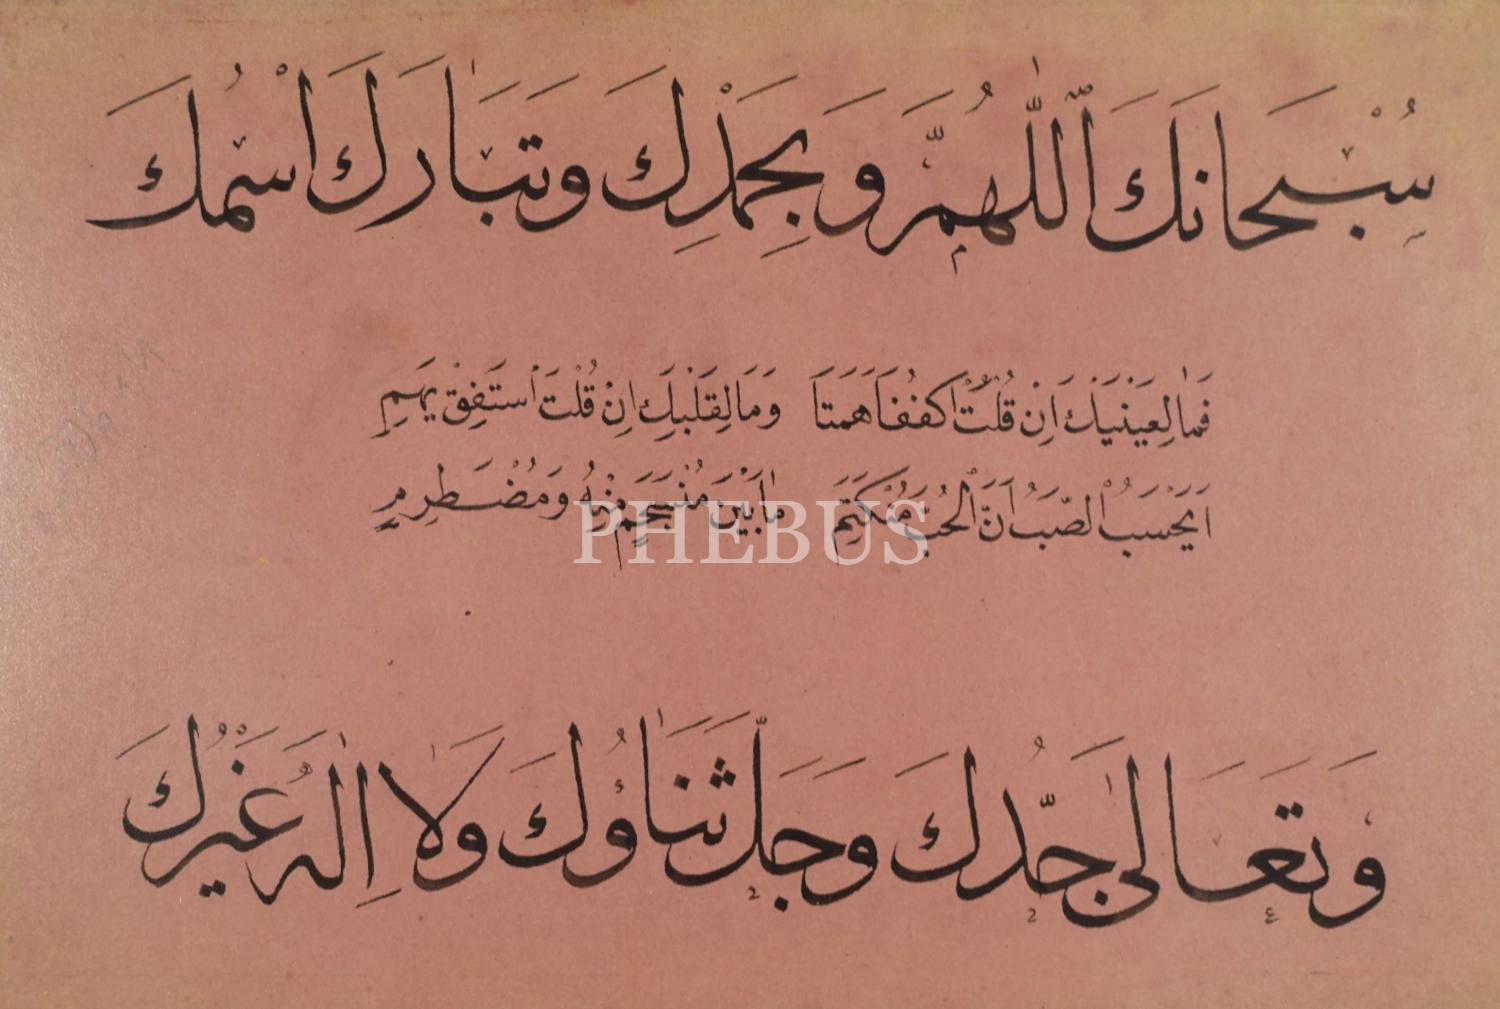 سُبْحَانَكَ اَللّٰهُمَّ وَبِحَمْدِكَ وَتَبَارَكَ اسْمُكَ
فَمَا لِعَيْنَيْكَ اِنْ قُلْتَ اكْفُفَا هَمَتَا وَمَا لِقَلْبِكَ اِنْ قُلْتَ اسْتَفِقْ يَهِمِ
اَيَحْسَبُ الصَّبُّ اَنَّ الْحُبَّ مُنْكَتِمٌ مَا بَيْنَ مُنْسَجِمٍ مِنْهُ وَمُضْطَرِمٍ
PHEBUS
وَتَعَالٰى جَدُّكَ وَجَلَّ ثَنَاؤُكَ وَلَا اِلٰهَ غَيْرُكَ